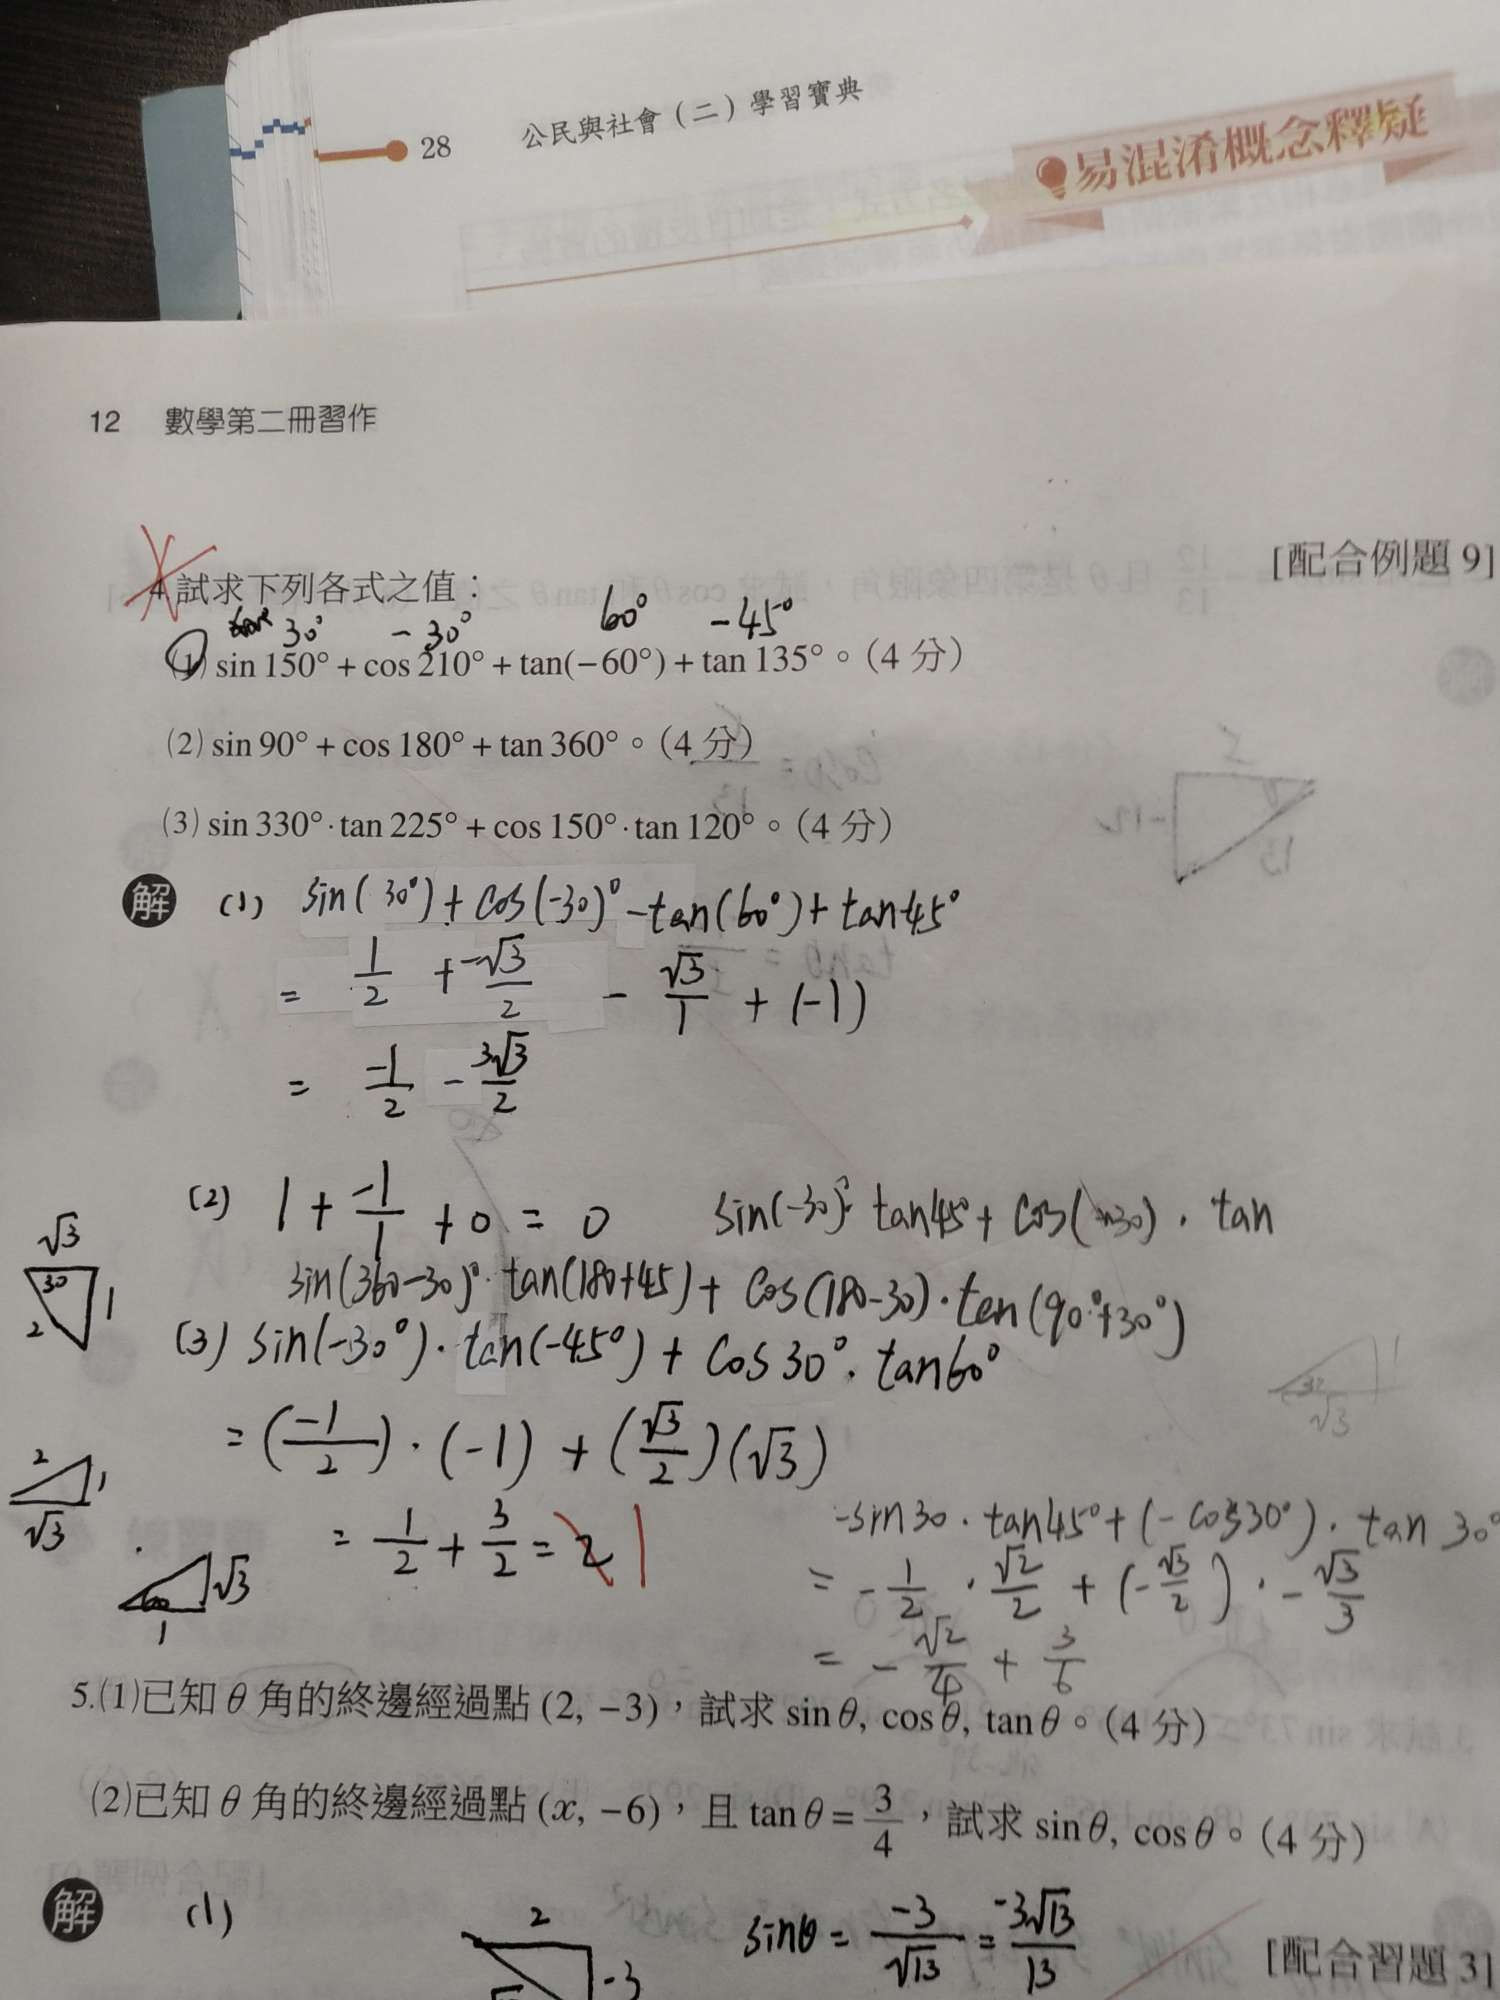 28 公民與社會（二）學習寶典
易混淆概念釋疑
12 數學第二冊習作
[配合例題 9]
4.試求下列各式之值：
30° -30° 60° -45°
(1) sin 150° + cos 210° + tan(−60°) + tan 135°。（4 分）
(2) sin 90° + cos 180° + tan 360°。（4 分）
(3) sin 330°·tan 225° + cos 150°·tan 120°。（4 分）
解 (1) sin(30°) + cos(-30)° - tan(60°) + tan45°
= 1/2 + -√3/2 - √3/1 + (-1)
= -1/2 - 3√3/2
(2) 1 + -1/1 + 0 = 0
sin(-30)°· tan45° + cos( 30) · tan
sin(360-30)°· tan(180+45) + cos(180-30) · tan(90°+30°)
(3) sin(-30°) · tan(-45°) + cos30° · tan60°
= (-1/2) · (-1) + (√3/2)(√3)
= 1/2 + 3/2 = 2 1
√3 30 1 2
2 1 √3
60 √3 1
-sin30 · tan45° + (-cos30°) · tan 30°
= -1/2 · √2/2 + (-√3/2) · -√3/3
= -√2/4 + 3/6
5.(1)已知 θ 角的終邊經過點 (2, −3)，試求 sin θ, cos θ, tan θ。（4 分）
(2)已知 θ 角的終邊經過點 (x, −6)，且 tan θ = 3/4，試求 sin θ, cos θ。（4 分）
解 (1) 2 -3 sinθ = -3/√13 = -3√13/13
[配合習題 3]